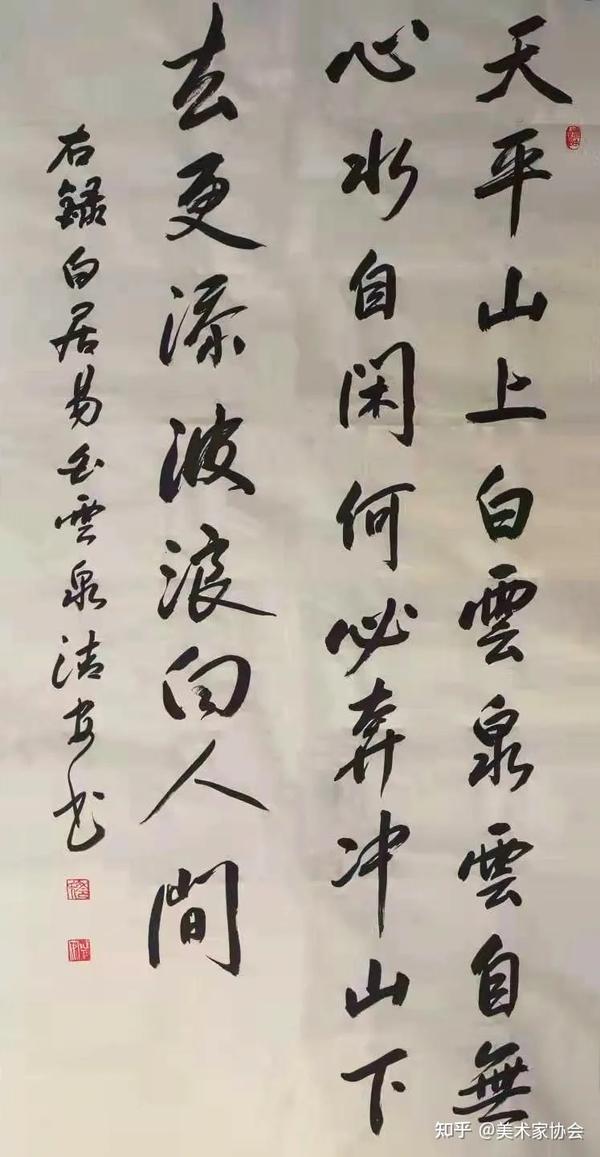 天平山上白雲泉雲自無
心水自閑何必奔冲山下
去更添波浪向人間
右錄白居易白雲泉清安书
知乎 @美术家协会